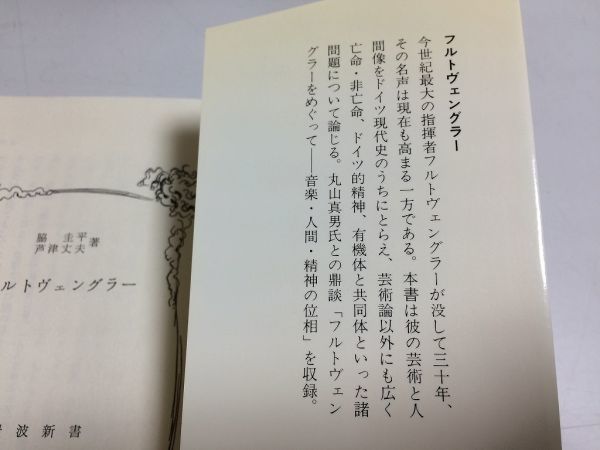 フルトヴェングラー
今世紀最大の指揮者フルトヴェングラーが没して三十年、
その名声は現在も高まる一方である。本書は彼の芸術と人
間像をドイツ現代史のうちにとらえ、芸術論以外にも広く
亡命・非亡命、ドイツ的精神、有機体と共同体といった諸
問題について論じる。丸山真男氏との鼎談「フルトヴェン
グラーをめぐって──音楽・人間・精神の位相」を収録。
脇 圭平
芦津丈夫 著
ルトヴェングラー
波新書